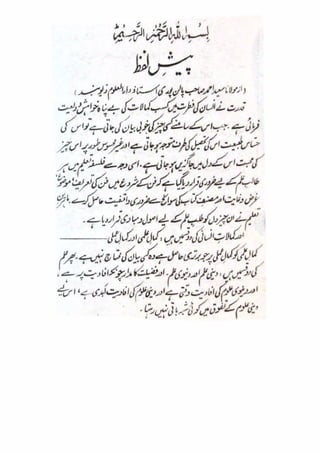 بسم اللہ الرحمن الرحیم
پیش لفظ
(از مولانا سعید احمد صاحب پالن پوری استاذ دارالعلوم دیوبند)
قدرت نے انسان کی فطرت میں کسب کمالات کی بے پناہ خواہش ودیعت
فرمائی ہے، جب اس کے سامنے کسی چیز کی خوبی بیان کی جاتی ہے تو اس کی
حساس طبیعت اس کی تحصیل کی طرف متوجہ ہو جاتی ہے اور غیر محسوس طور پر اس چیز
کی محبت اس کے دل میں جاگزیں ہو جاتی ہے، اسی وجہ سے فلسفۂ تعلیم میں ہر
طالب علم کے لیے ضروری قرار دیا گیا ہے کہ فن کے شروع میں فن کی تعریف، موضوع
غرض و غایت اور مصنف کتاب کی سوانح سے ضروری واقفیت حاصل کرے، ماہرین
تعلیم نے ان چیزوں کو طلب علم کے لیے اصول و مبادی قرار دیا ہے۔
اور کمالات انسانی کی دو قسمیں ہیں، کمال علمی اور کمال عملی
کمال علمی کو کمال عملی پر جو برتری حاصل ہے وہ کسی بیان کی محتاج نہیں ہے، پھر علم
کی دو قسمیں ہیں، دینی علم اور دنیوی علم، اور فضیلت کا مدار چونکہ افادیت پر ہے،
اور دنیوی علوم کی افادیت وقتی ہے اور دینی علوم کی افادیت ابدی ہے، اس لیے
دینی علوم کے تفوق میں کوئی شبہ باقی نہیں رہتا۔